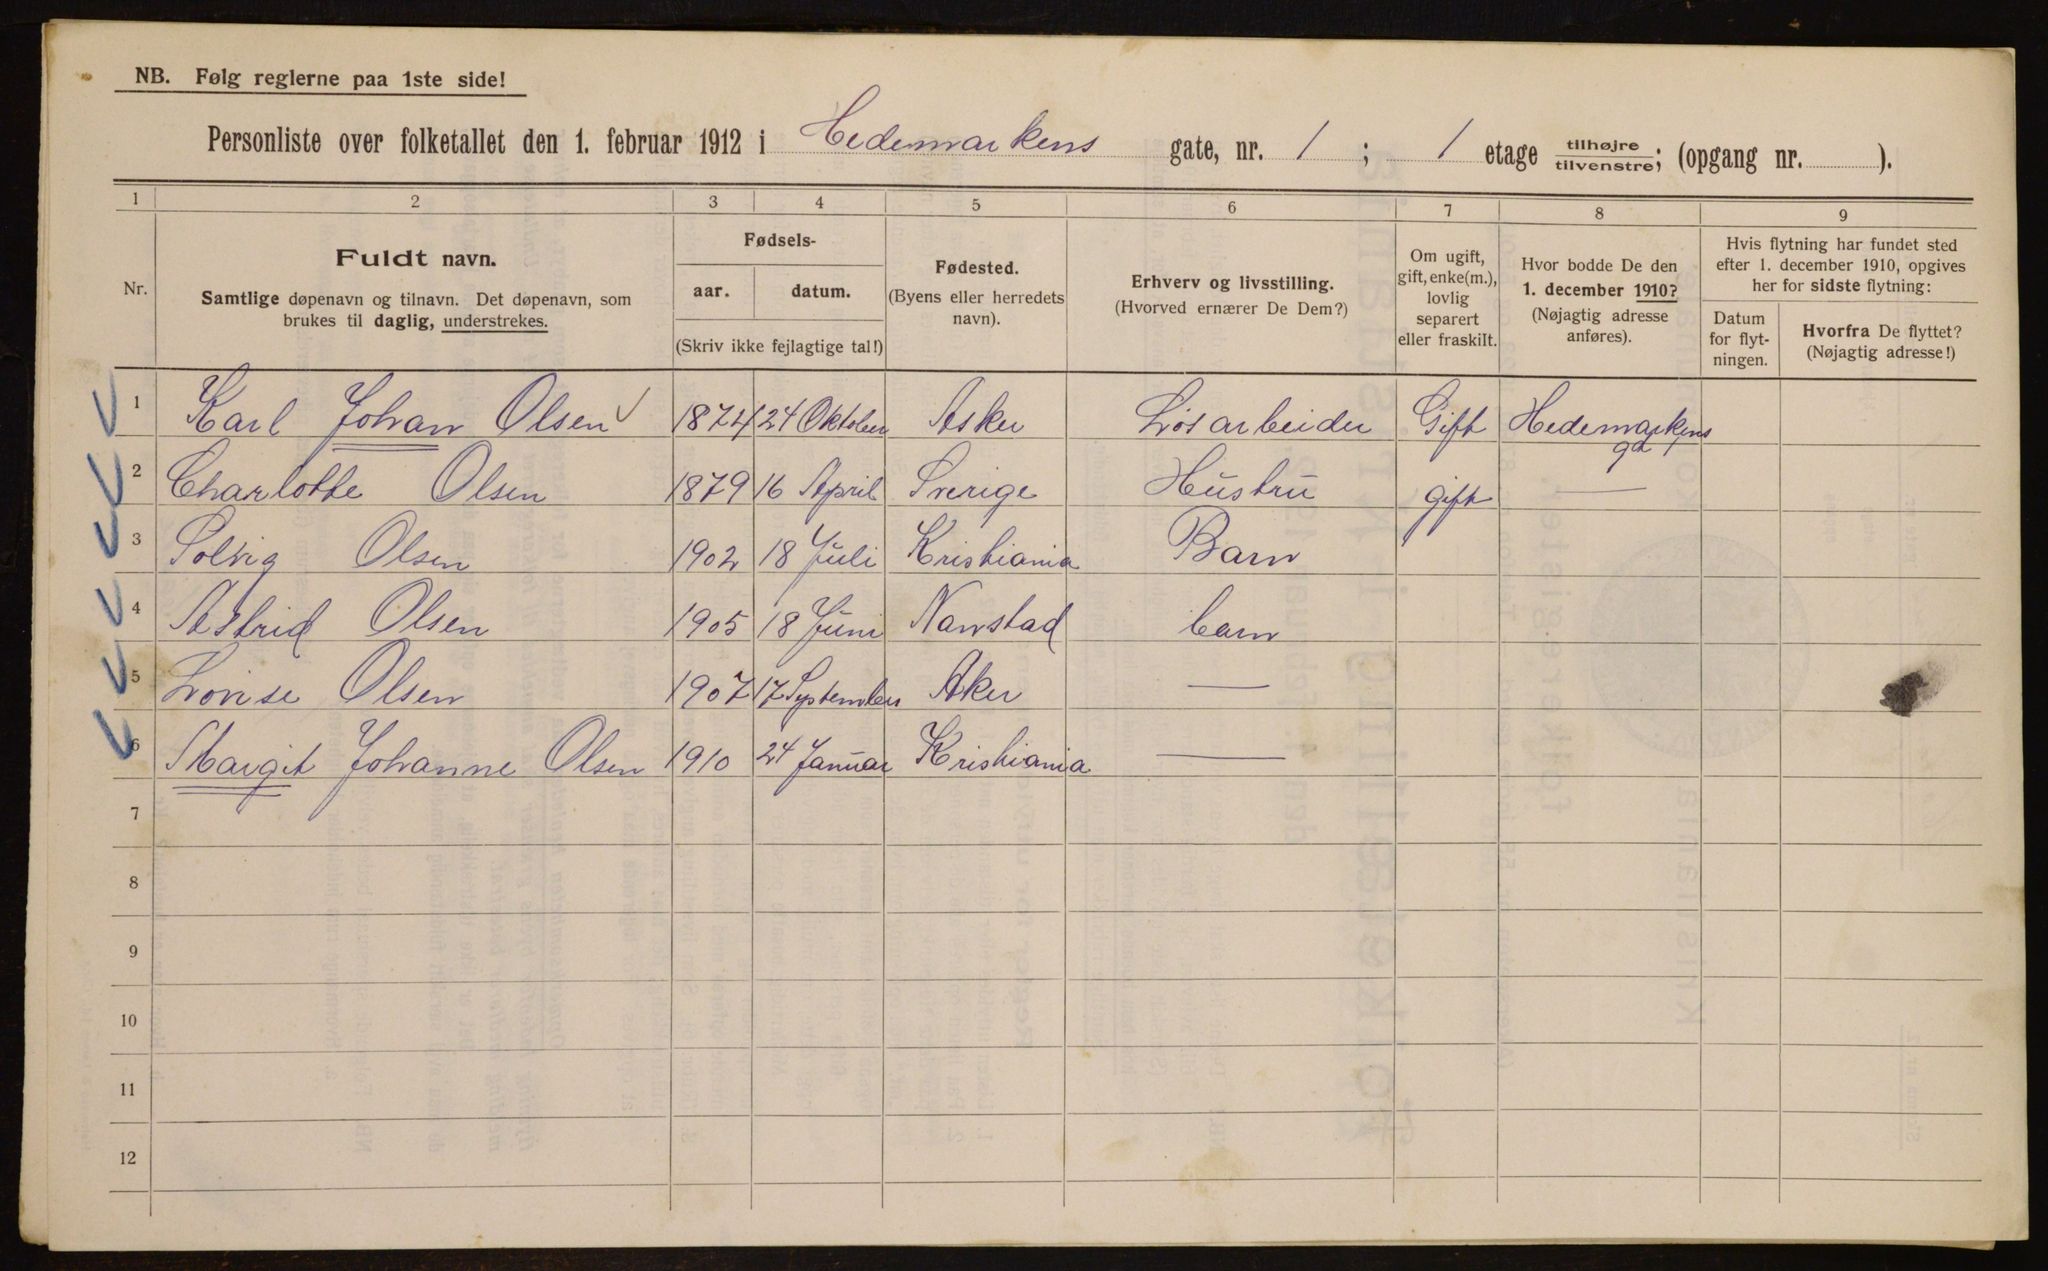 NB. Følg reglerne paa 1ste side!
Personliste over folketallet den 1. februar 1912 i Hedemarkens gate, nr. 1 ; 1 etage tilhøjre/tilvenstre; (opgang nr. ).
1 2 3 4 5 6 7 8 9
Nr.
Fuldt navn.
Samtlige døpenavn og tilnavn. Det døpenavn, som
brukes til daglig, understrekes.
Fødsels-
aar. datum.
(Skriv ikke fejlagtige tal!)
Fødested.
(Byens eller herredets
navn).
Erhverv og livsstilling.
(Hvorved ernærer De Dem?)
Om ugift,
gift, enke(m.),
lovlig
separert
eller fraskilt.
Hvor bodde De den
1. december 1910?
(Nøjagtig adresse
anføres).
Hvis flytning har fundet sted
efter 1. december 1910, opgives
her for sidste flytning:
Datum
for flyt-
ningen.
Hvorfra De flyttet?
(Nøjagtig adresse!)
1 Karl Johan Olsen 1874 24 Oktober Asker Løsarbeider Gift Hedemarkens
gd 1
2 Charlotte Olsen 1879 16 April Sverige Hustru gift —
3 Solvig Olsen 1902 18 Juli Kristiania Barn
4 Astrid Olsen 1905 18 Juni Nanstad barn
5 Lovise Olsen 1907 17 September Aker —
6 Margit Johanne Olsen 1910 24 Januar Kristiania —
7
8
9
10
11
12